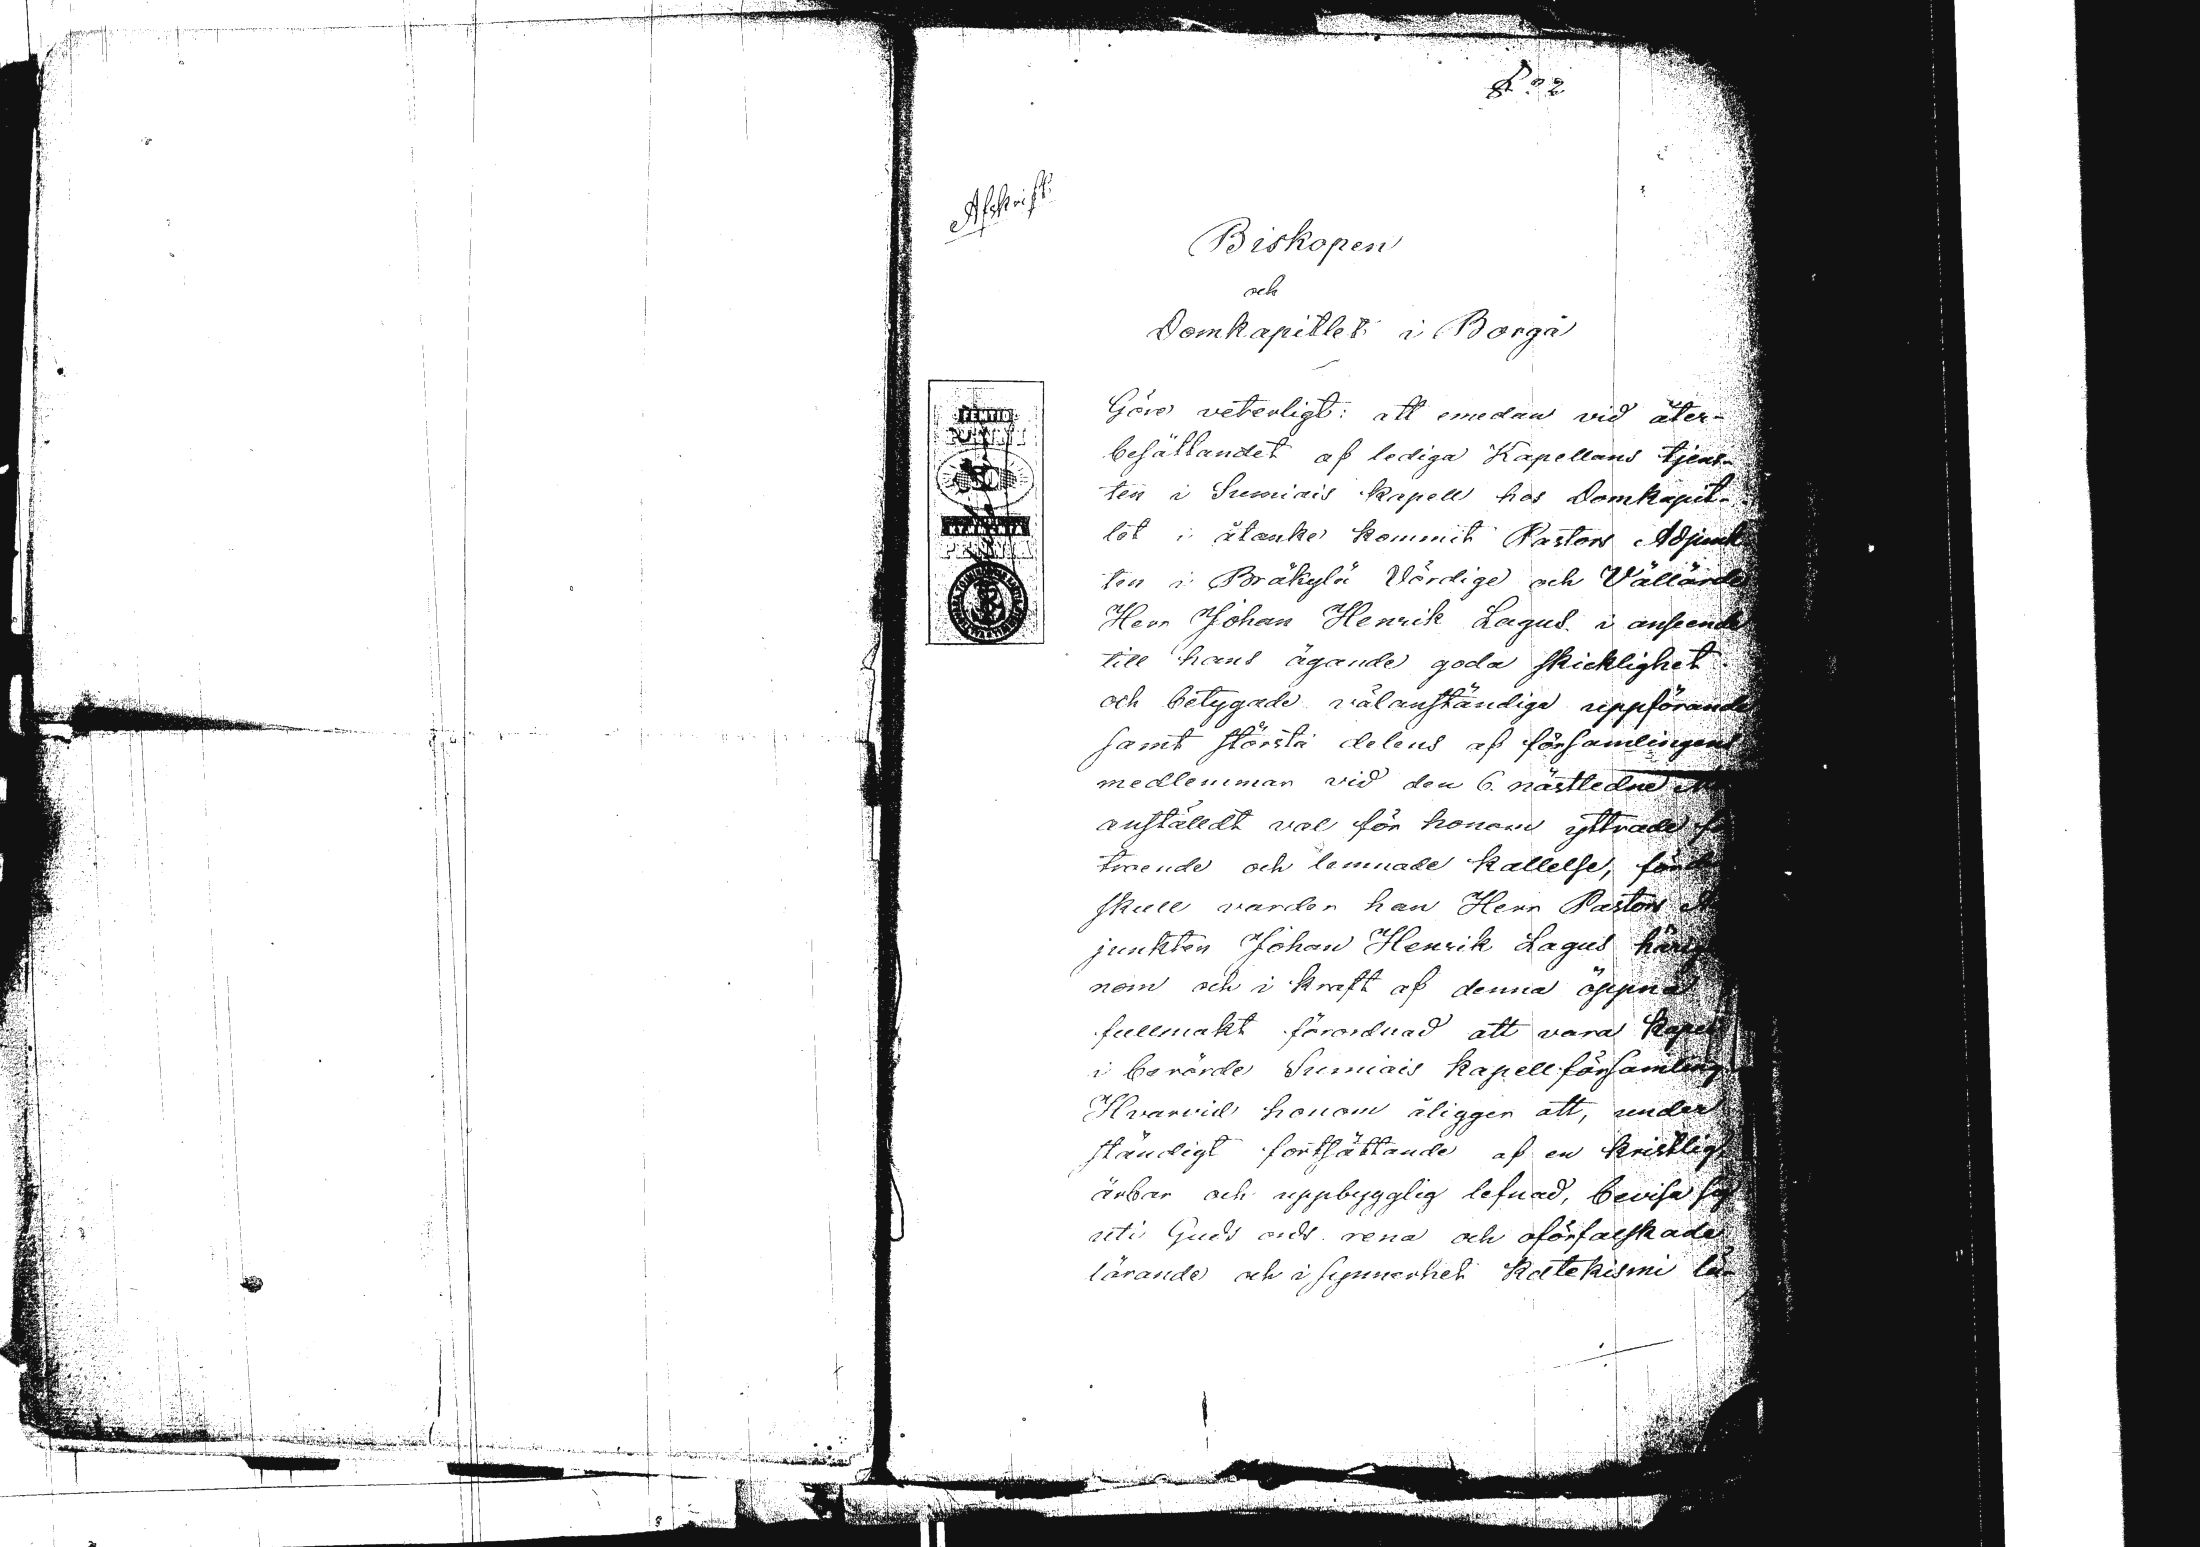 Afskrift.
Biskopen
och
Domkapitlet i Borgå
FEMTIO
PENNIÄ
50
PENNIÄ
Göre veterligt: att emedan vid åter-
besättandet af lediga Kapellans tjens-
ten i Sumiais kapell hos Domkapit-
let i åtanke kommit Pastors Adjunk
ten i Bräkylä Vördige och Vällärde
Herr Johan Henrik Lagus i anseende
till hans ägande goda skicklighet
och betygade välanständiga uppförande
samt största delens af församlingens
medlemmar vid den 6. nästledne
anställdt val för honom yttrade
troende och lemnade kallelse,
skull varder han Herr Pastors
junkten Johan Henrik Lagus
nom och i kraft af denna öppna
fullmakt förordnad att vara
i berörde Sumiais kapellförsamling
Hvarvid honom åligger att, under
ständigt fortsättande af en kristlig,
ärbar och uppbygglig lefnad, bevisa sig
uti Guds ords rena och oförfalskade
lärande och i synnerhet Katekismi lä-